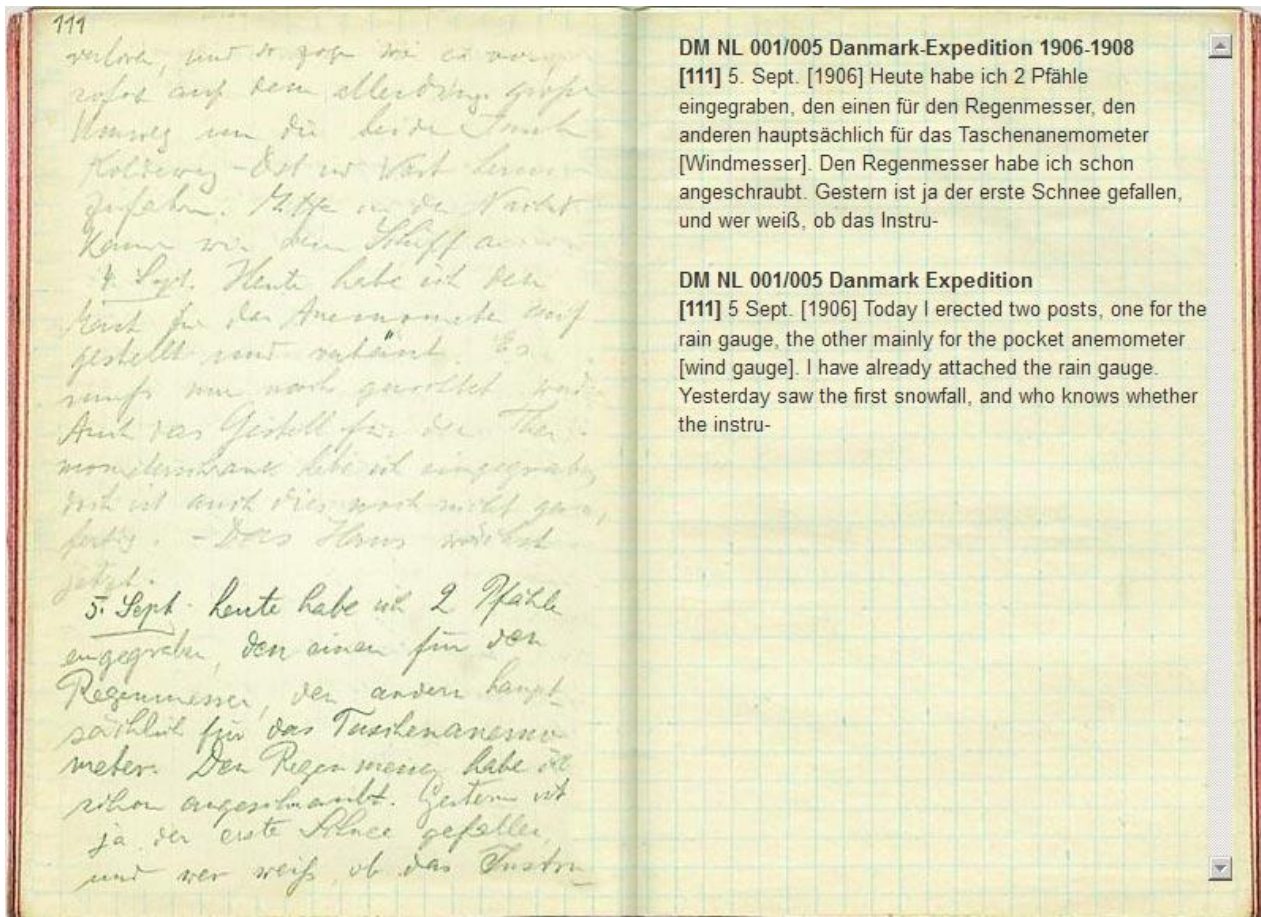 111
verloren, und so zogen wir es vor,
sofort auf dem allerdings großen
Umweg um die beiden Inseln
Koldewey-Ost und West herum-
zufahren. Mitten in der Nacht
kamen wir beim Schiff an
4. Sept. Heute habe ich den
Mast für das Anemometer auf-
gestellt und
muß nur noch werden
Auch das Gestell für den Ther-
mometerschrank habe ich eingegraben,
doch ist auch dies noch nicht ganz
fertig. - Das Haus wächst
jetzt.
5. Sept. heute habe ich 2 Pfähle
eingegraben, den einen für den
Regenmesser, den andern haupt-
sächlich für das Taschenanemo-
meter. Den Regenmesser habe ich
schon angeschraubt. Gestern ist
ja der erste Schnee gefallen,
und wer weiß, ob das Instru-
DM NL 001/005 Danmark-Expedition 1906-1908
[111] 5. Sept. [1906] Heute habe ich 2 Pfähle
eingegraben, den einen für den Regenmesser, den
anderen hauptsächlich für das Taschenanemometer
[Windmesser]. Den Regenmesser habe ich schon
angeschraubt. Gestern ist ja der erste Schnee gefallen,
und wer weiß, ob das Instru-
DM NL 001/005 Danmark Expedition
[111] 5 Sept. [1906] Today I erected two posts, one for the
rain gauge, the other mainly for the pocket anemometer
[wind gauge]. I have already attached the rain gauge.
Yesterday saw the first snowfall, and who knows whether
the instru-